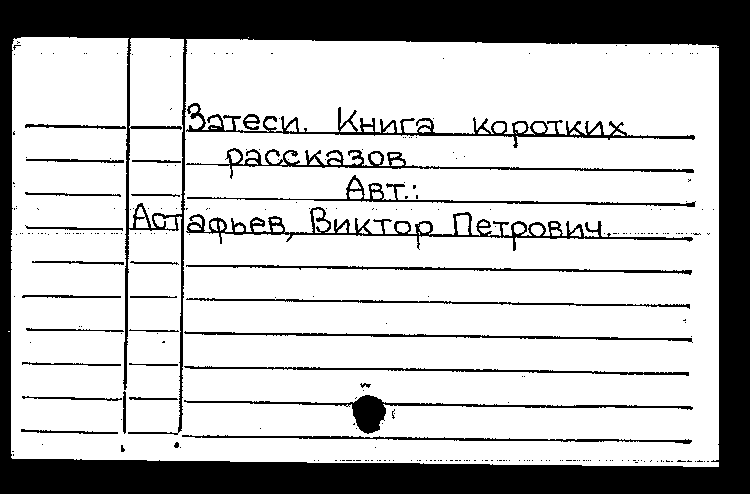 Затеси. Книга коротких
рассказов
Авт.:
Астафьев, Виктор Петрович.